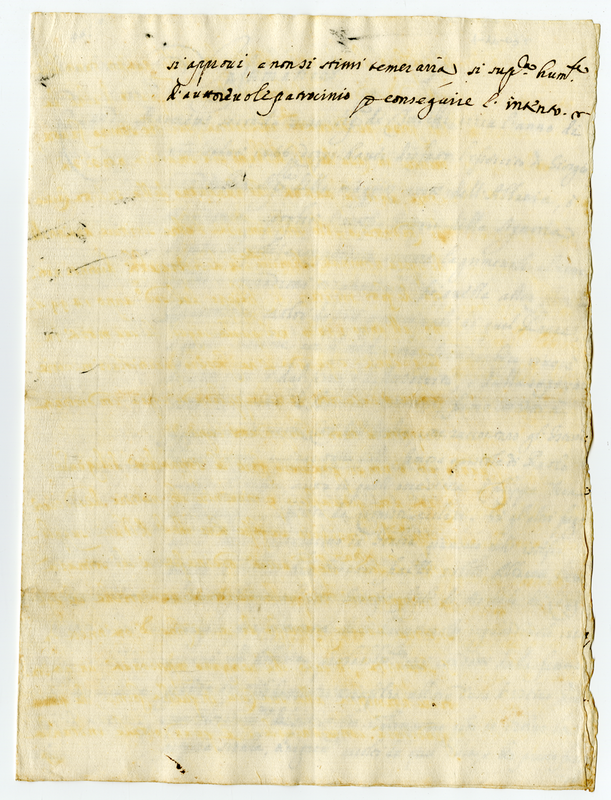 si approvi, e non si stimi temeraria, si sup.ca hum.te
d'auttorevole patrocinio p conseguire l'intento.